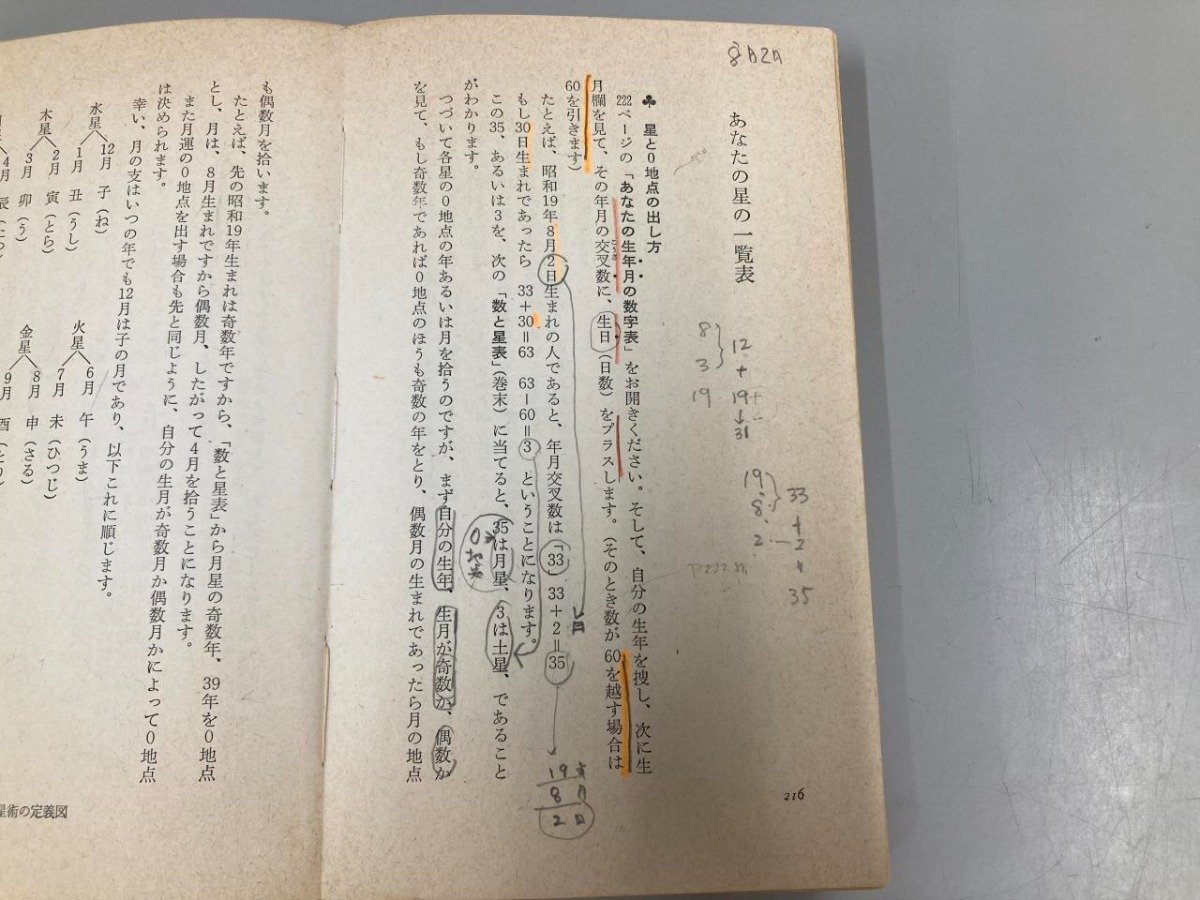 8月2日
あなたの星の一覧表
♣ 星と0地点の出し方
222ページの「あなたの生年月の数字表」をお開きください。そして、自分の生年を捜し、次に生
月欄を見て、その年月の交叉数に、生日(日数)をプラスします。(そのとき数が60を越す場合は
60を引きます)
たとえば、昭和19年8月2日生まれの人であると、年月交叉数は「33」33+2=35
もし30日生まれであったら 33+30=63 63-60=3 ということになります。
この35、あるいは3を、次の「数と星表」(巻末)に当てると、35は月星、3は土星、であること
がわかります。
つづいて各星の0地点の年あるいは月を拾うのですが、まず自分の生年、生月が奇数か、偶数か
を見て、もし奇数年であれば0地点のほうも奇数の年をとり、偶数月の生まれであったら月の地点
8
3
19
12
+
19
↓
31
19
8
2
33
+
2
35
19年
8月
2日
216
も偶数月を拾います。
たとえば、先の昭和19年生まれは奇数年ですから、「数と星表」から月星の奇数年、39年を0地点
とし、月は、8月生まれですから偶数月、したがって4月を拾うことになります。
また月運の0地点を出す場合も先と同じように、自分の生月が奇数月か偶数月かによって0地点
は決められます。
幸い、月の支はいつの年でも12月は子の月であり、以下これに順じます。
水星
12月 子(ね)
1月 丑(うし)
木星
2月 寅(とら)
3月 卯(う)
4月 辰(たつ
火星
6月 午(うま)
7月 未(ひつじ)
金星
8月 申(さる)
9月 酉(とり
星術の定義図